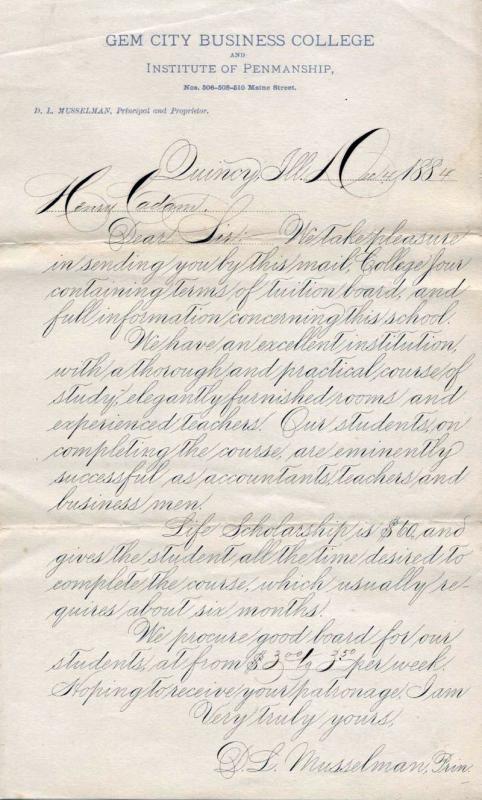 GEM CITY BUSINESS COLLEGE
AND
INSTITUTE OF PENMANSHIP,
Nos. 506-508-510 Maine Street.
D. L. MUSSELMAN, Principal and Proprietor.
Quincy, Ill. Dec 4, 1884
Henry Eadam.
Dear Sir:— We take pleasure
in sending you by this mail, College Jour
containing terms of tuition board, and
full information concerning this school.
We have an excellent institution,
with a thorough and practical course of
study, elegantly furnished rooms and
experienced teachers. Our students, on
completing the course, are eminently
successful as accountants, teachers and
business men.
Life Scholarship is $60, and
gives the student all the time desired to
complete the course, which usually re-
quires about six months.
We procure good board for our
students, at from $3.00 to 3.50 per week.
Hoping to receive your patronage, I am
Very truly yours,
D. L. Musselman, Prin.